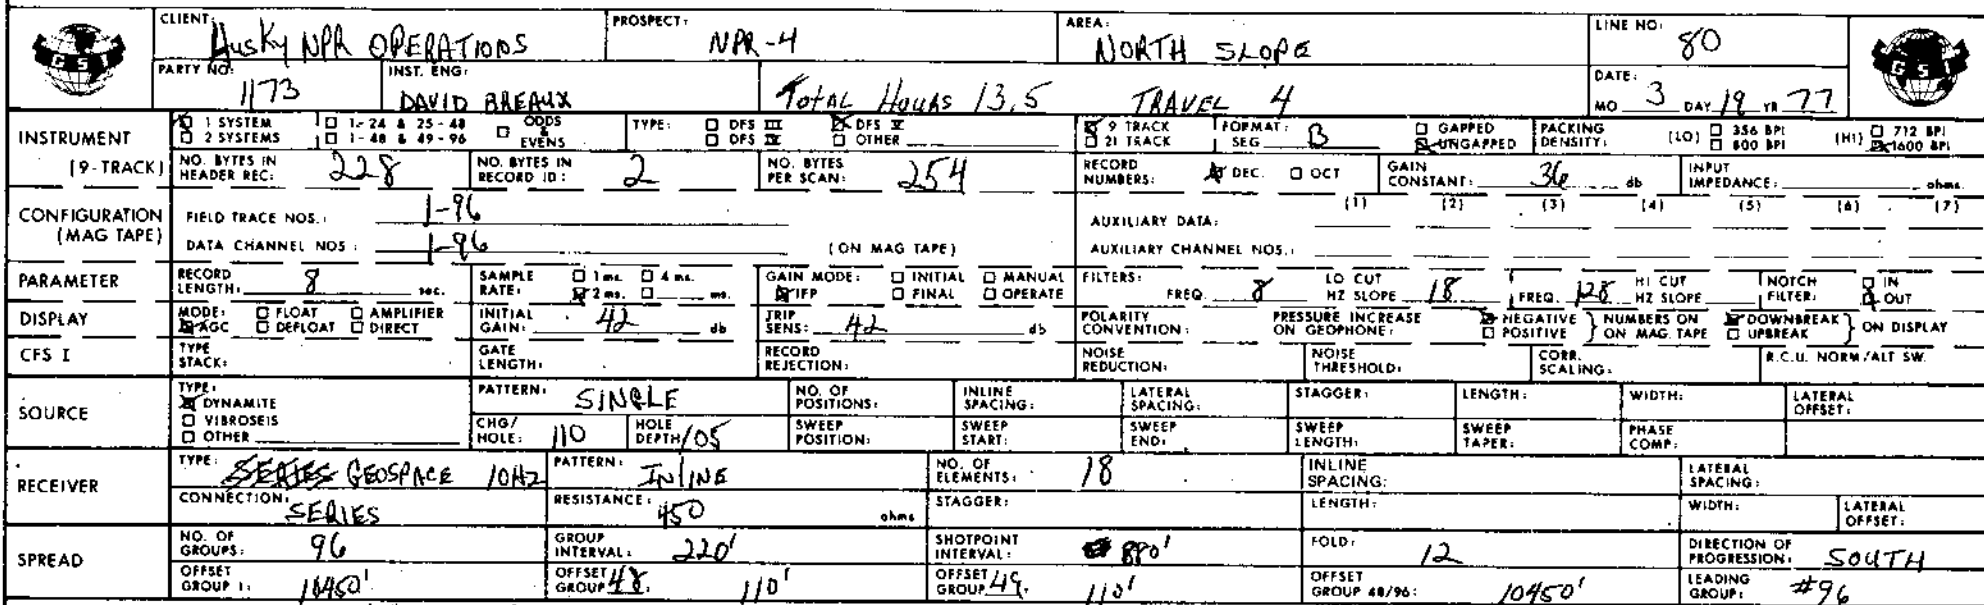 CLIENT: Husky NPR OPERATIONS PROSPECT: NPR-4 AREA: NORTH SLOPE LINE NO: 80
GSI
PARTY NO: 1173 INST. ENG: DAVID BREAUX TOTAL HOURS 13.5 TRAVEL 4 DATE: MO 3 DAY 19 YR 77
GSI
INSTRUMENT 1 SYSTEM 1 - 24 & 25 - 48 ODDS & EVENS TYPE: DFS III DFS V 9 TRACK FORMAT: SEG B GAPPED PACKING DENSITY: (LO) 356 BPI (HI) 712 BPI
2 SYSTEMS 1 - 48 & 49 - 96 DFS IV OTHER 21 TRACK UNGAPPED 800 BPI 1600 BPI
(9-TRACK) NO. BYTES IN HEADER REC: 228 NO. BYTES IN RECORD ID: 2 NO. BYTES PER SCAN: 254 RECORD NUMBERS: DEC. OCT GAIN CONSTANT: 36 db INPUT IMPEDANCE: ohms
CONFIGURATION (MAG TAPE) FIELD TRACE NOS.: 1-96 AUXILIARY DATA: (1) (2) (3) (4) (5) (6) (7)
DATA CHANNEL NOS: 1-96 (ON MAG TAPE) AUXILIARY CHANNEL NOS.:
PARAMETER RECORD LENGTH: 8 sec. SAMPLE RATE: 1 ms. 4 ms. 2 ms. ms. GAIN MODE: INITIAL MANUAL IFP FINAL OPERATE FILTERS: FREQ. 8 LO CUT HZ SLOPE 18 FREQ. 128 HI CUT HZ SLOPE NOTCH FILTER: IN OUT
DISPLAY MODE: FLOAT AMPLIFIER AGC DEFLOAT DIRECT INITIAL GAIN: 42 db TRIP SENS: 42 db POLARITY CONVENTION: PRESSURE INCREASE ON GEOPHONE: NEGATIVE POSITIVE } NUMBERS ON ON MAG. TAPE DOWNBREAK UPBREAK } ON DISPLAY
CFS I TYPE STACK: GATE LENGTH: RECORD REJECTION: NOISE REDUCTION: NOISE THRESHOLD: CORR. SCALING: R.C.U. NORM/ALT SW.
SOURCE TYPE: DYNAMITE VIBROSEIS OTHER PATTERN: SINGLE NO. OF POSITIONS: INLINE SPACING: LATERAL SPACING: STAGGER: LENGTH: WIDTH: LATERAL OFFSET:
CHG/HOLE: 110 HOLE DEPTH 105 SWEEP POSITION: SWEEP START: SWEEP END: SWEEP LENGTH: SWEEP TAPER: PHASE COMP:
RECEIVER TYPE: SERIES GEOSPACE 10HZ PATTERN: INLINE NO. OF ELEMENTS: 18 INLINE SPACING: LATERAL SPACING:
CONNECTION: SERIES RESISTANCE: 450 ohms STAGGER: LENGTH: WIDTH: LATERAL OFFSET:
SPREAD NO. OF GROUPS: 96 GROUP INTERVAL: 220' SHOTPOINT INTERVAL: 880' FOLD: 12 DIRECTION OF PROGRESSION: SOUTH
OFFSET GROUP 1: 10450' OFFSET GROUP 48: 110' OFFSET GROUP 49: 110' OFFSET GROUP 48/96: 10450' LEADING GROUP: #96